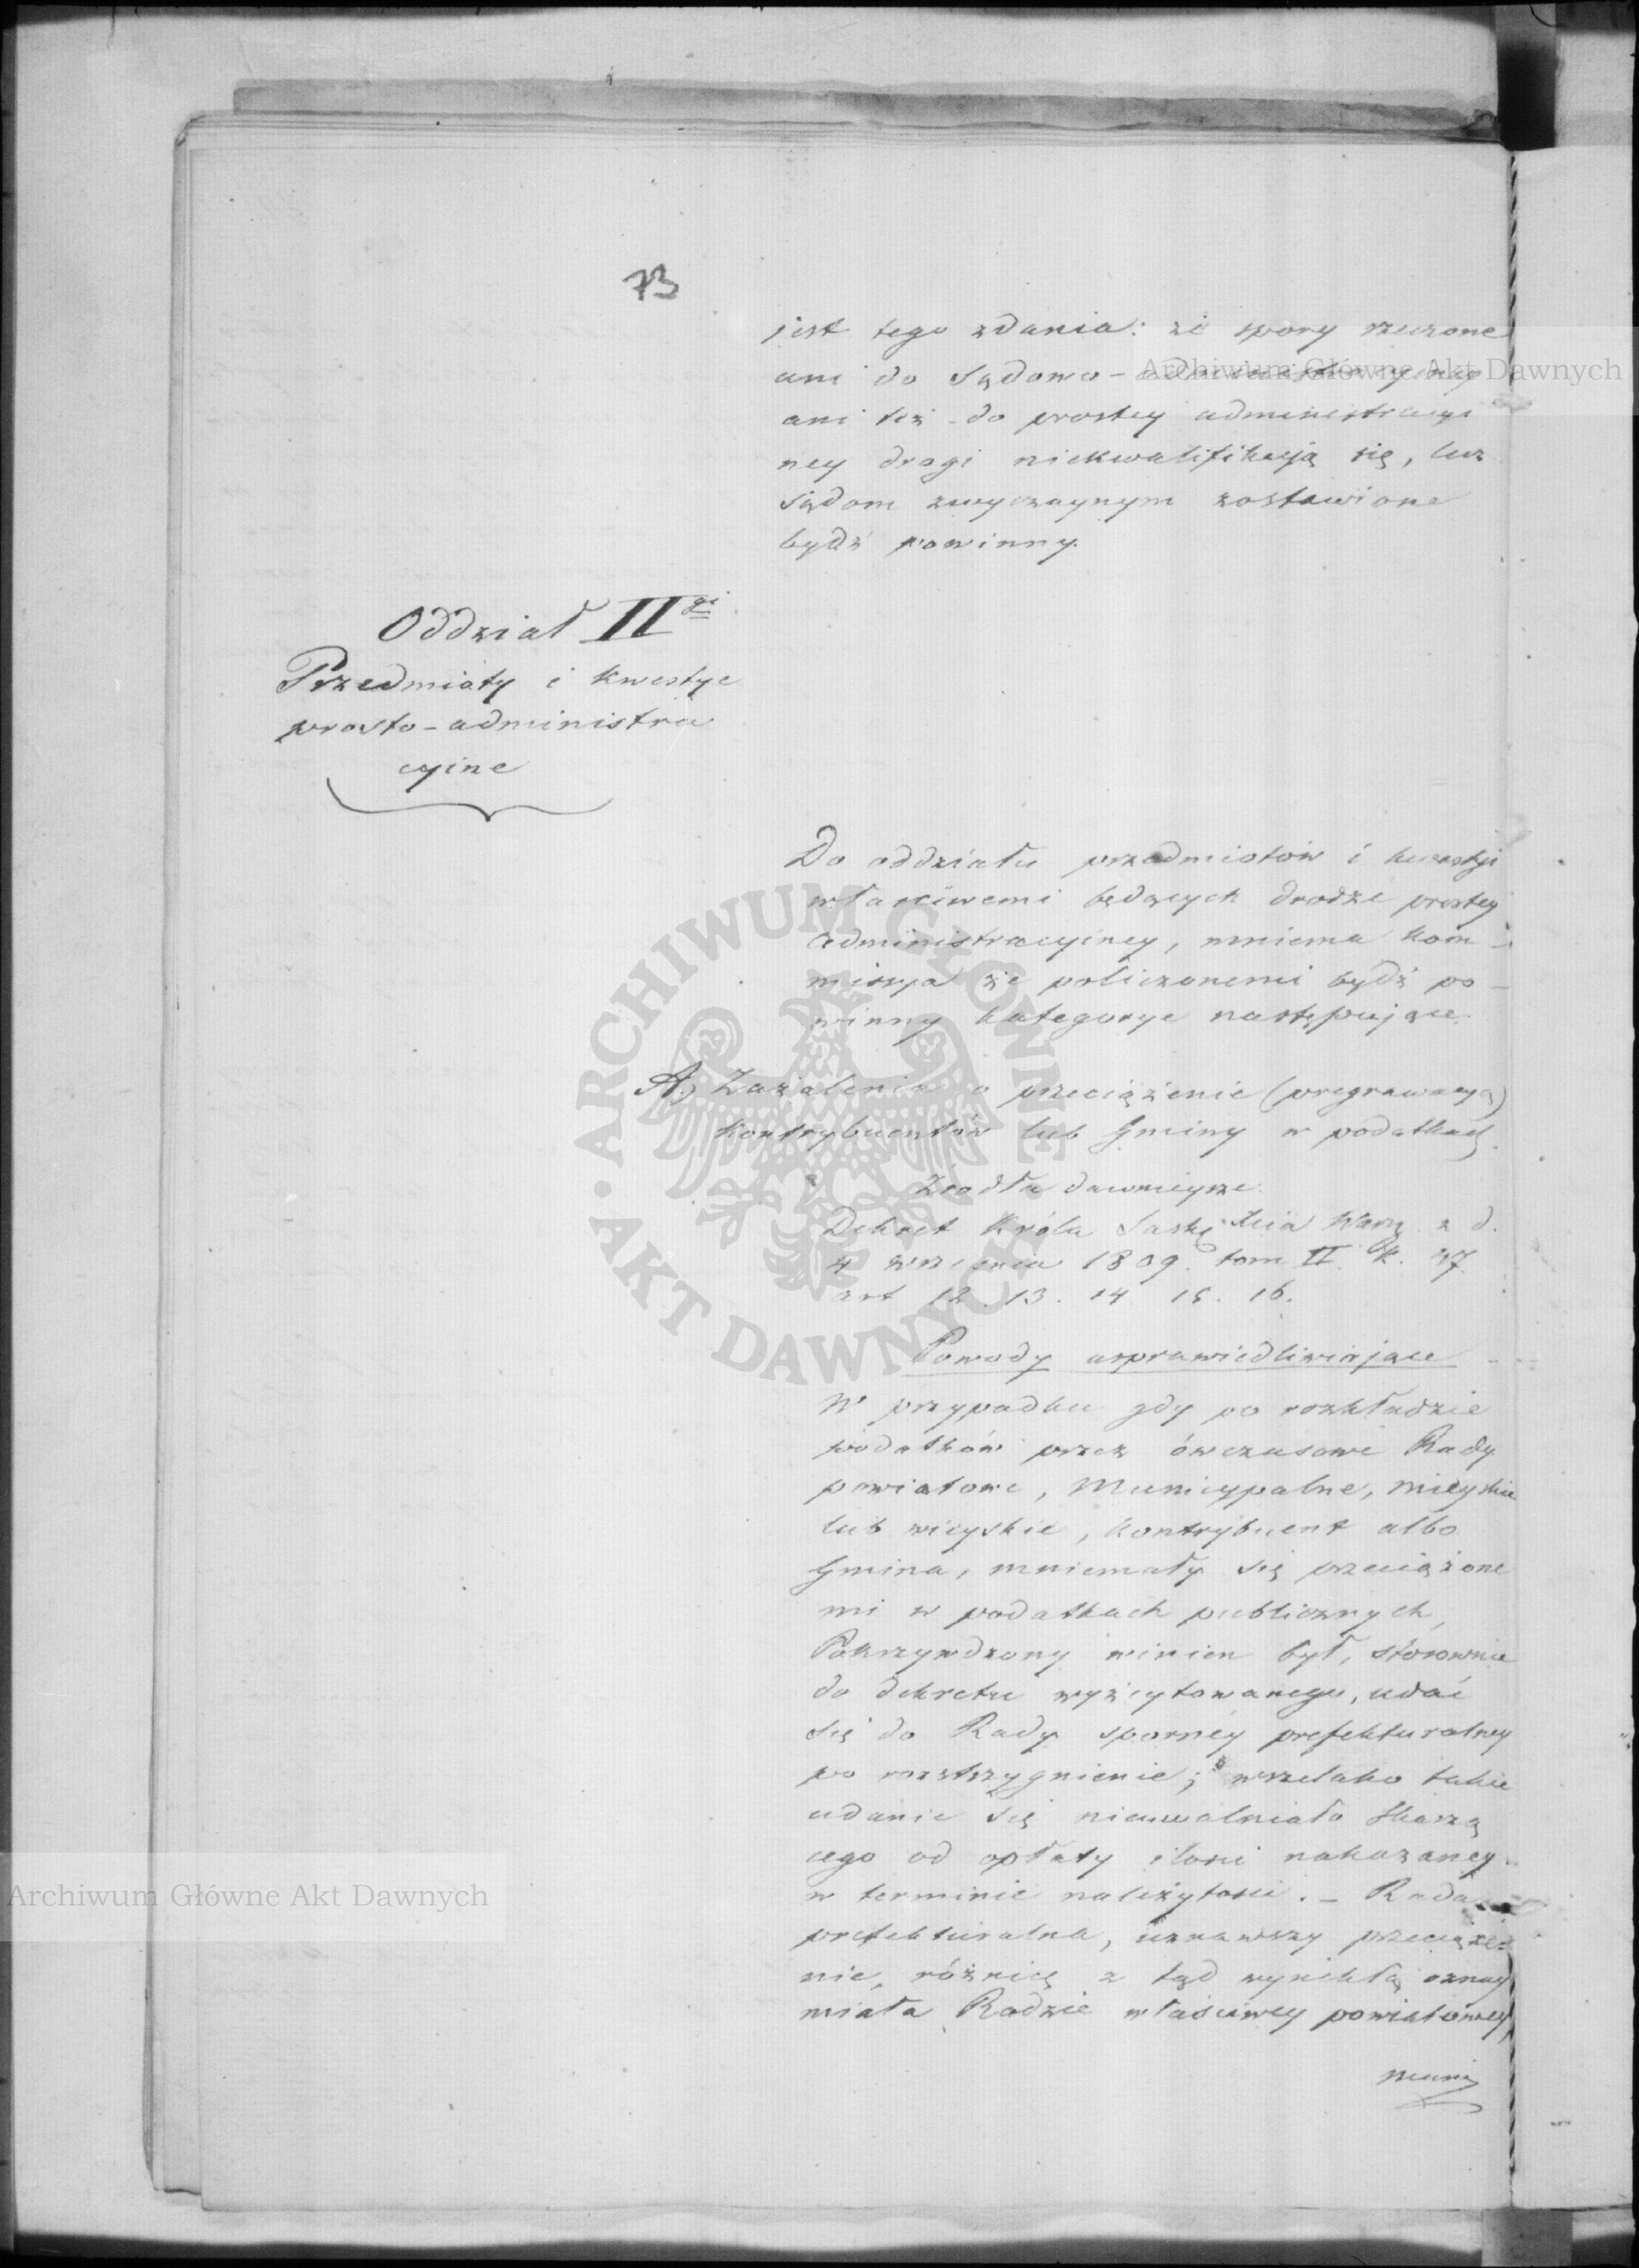 73
jest tego zdania: że spory rzeczone
ani do Sądowo-administracyiney
ani też do prostey administracyi
ney drogi niekwalifikują się, lecz
Sądom zwyczaynym zostawione
bydź powinny.
Oddział II gi
Przedmioty i kwestye
prosto-administra
cyine
Do oddziału przedmiotów i kwestyi
właściwemi będących drodze prostey
administracyiney, mniema Kom-
missya że policzonemi bydź po-
winny kategorye następujące
A) Zażalenia o przeciążenie (pregrawacyą)
Kontrybuentów lub Gminy w podatkach.
Źrodła dawnieysze
Dekret Króla Saski Xcia Warsz. z d.
4 września 1809. tom II. k. 47
art 12. 13. 14 15. 16.
Powody usprawiedliwiające
W przypadku gdy po rozkładzie
podatków przez ówczasowe Rady
powiatowe, Municypalne, mieyskie
lub wieyskie, kontrybuent albo
Gmina, mniemały się przeciążone
mi w podatkach publicznych,
Pokrzywdzony winien był, stosownie
do dekretu wyżcytowanego, udać
się do Rady sporney prefekturalney
po rozstrzygnienie; wszelako takie
udanie się nieuwalniało skarżą
cego od opłaty ilości nakazaney
w terminie należytości. - Rada
prefekturalna, uznawszy przeciąże-
nie, różnicę z tąd wynikłą oznay
miała Radzie właściwey powiatowey,
muni
Archiwum Główne Akt Dawnych
Archiwum Główne Akt Dawnych
ARCHIWUM GŁÓWNE · AKT DAWNYCH ·